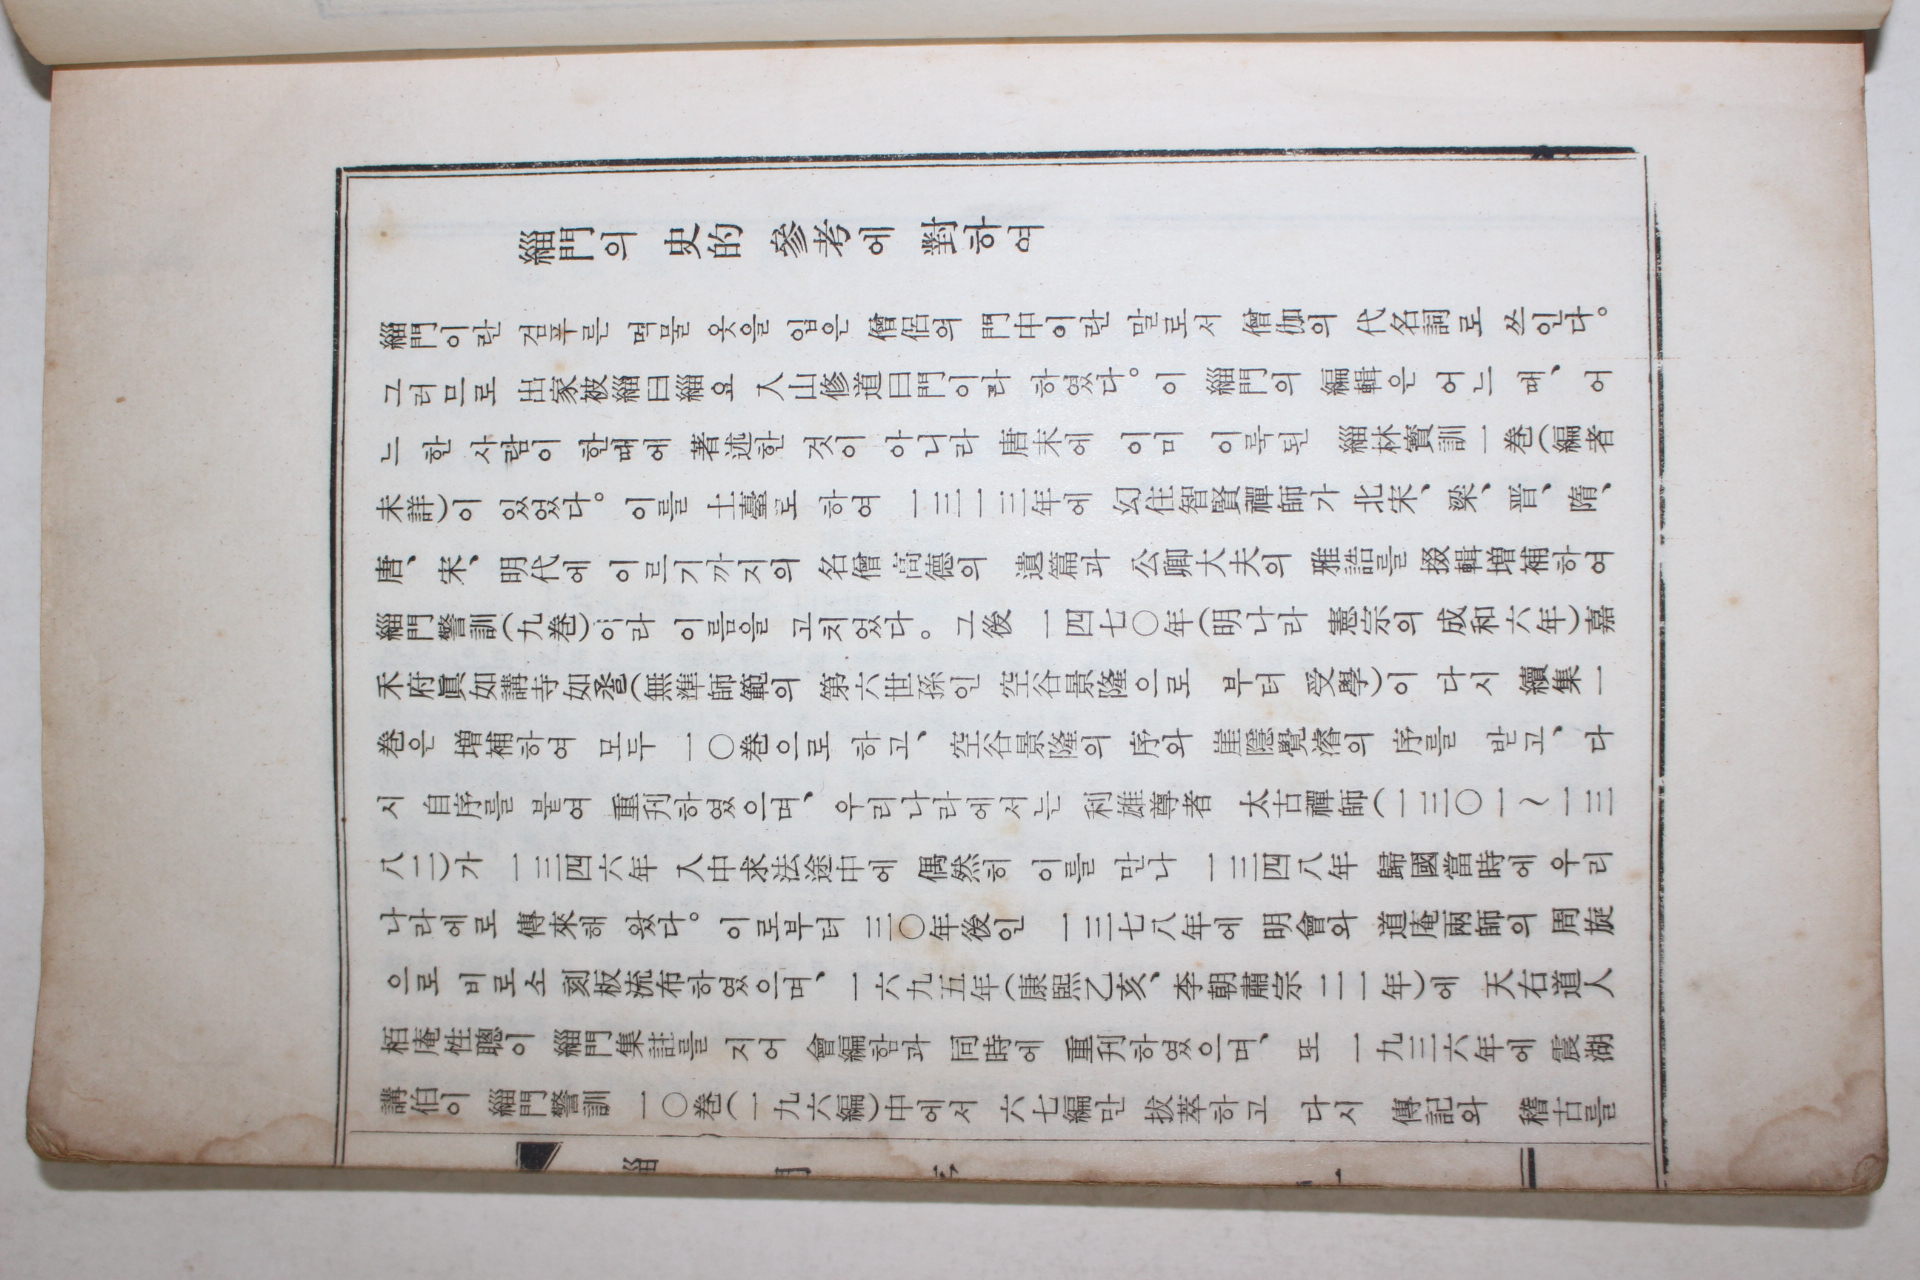 緇門의 史的 參考에 對하여
緇門이란 검푸른 먹물 옷을 입은 僧侶의 門中이란 말로서 僧伽의 代名詞로 쓰인다。
그러므로 出家被緇曰緇요 入山修道曰門이라 하였다。이 緇門의 編輯은 어느 때、어
느 한 사람이 한때에 著述한 것이 아니라 唐末에 이미 이룩된 緇林寶訓一巻(編者
未詳)이 있었다。이를 土臺로 하여 一三一三年에 幻住智賢禪師가 北宋、梁、晋、隋、
唐、宋、明代에 이르기까지의 名僧高德의 遺篇과 公卿大夫의 雅誥를 掇輯増補하여
緇門警訓(九巻)이라 이름을 고치었다。그後 一四七〇年(明나라 憲宗의 成和六年)嘉
禾府眞如講寺如巹(無準師範의 第六世孫인 空谷景隆으로 부터 受學)이 다시 續集一
巻은 増補하여 모두 一〇巻으로 하고、空谷景隆의 序와 崖隱覺濬의 序를 받고、다
시 自序를 붙여 重刊하였으며、우리나라에서는 利雄尊者 太古禪師(一三〇一~一三
八二)가 一三四六年 入中求法途中에 偶然히 이를 만나 一三四八年 歸國當時에 우리
나라에로 傳來해 왔다。이로부터 三〇年後인 一三七八年에 明會와 道庵兩師의 周旋
으로 비로소 刻板流布하였으며、一六九五年(康熙乙亥、李朝肅宗二一年)에 天右道人
栢庵性聰이 緇門集註를 지어 會編함과 同時에 重刊하였으며、또 一九三六年에 震湖
講伯이 緇門警訓 一〇巻(一九六編)中에서 六七編만 拔萃하고 다시 傳記와 稽古를